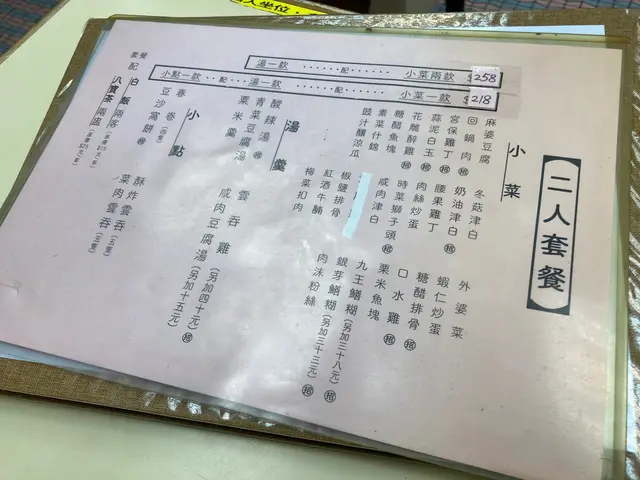 人坐位
【二人套餐】
小菜兩款 ‥‥‥配‥‥‥ 湯一款 $258
小菜一款 ‥‥‥配‥‥‥ 湯一款 ‥‥配‥‥ 小點一款 $218
小菜
麻婆豆腐 冬菇津白 外婆菜
回鍋肉 奶油津白 蝦仁炒蛋
宮保雞丁 腰果雞丁 糖醋排骨
蒜泥白玉 肉絲炒蛋 口水雞
花雕醉雞 時菜獅子頭 栗米魚塊
糖醋魚塊 咸肉津白 九王鱔糊(另加三十八元)
素菜什錦 銀芽鱔糊(另加三十三元)
豉汁釀涼瓜 椒鹽排骨 肉沫粉絲
紅酒牛腩
梅菜扣肉
湯羹
酸辣湯 雲吞雞(另加四十元)
青菜豆腐湯 咸肉豆腐湯(另加十五元)
粟米羹
小點
春卷(四隻) 酥炸雲吞(五隻)
豆沙窩餅 菜肉雲吞(五隻)
套餐配
白飯兩客
八寶茶兩盅